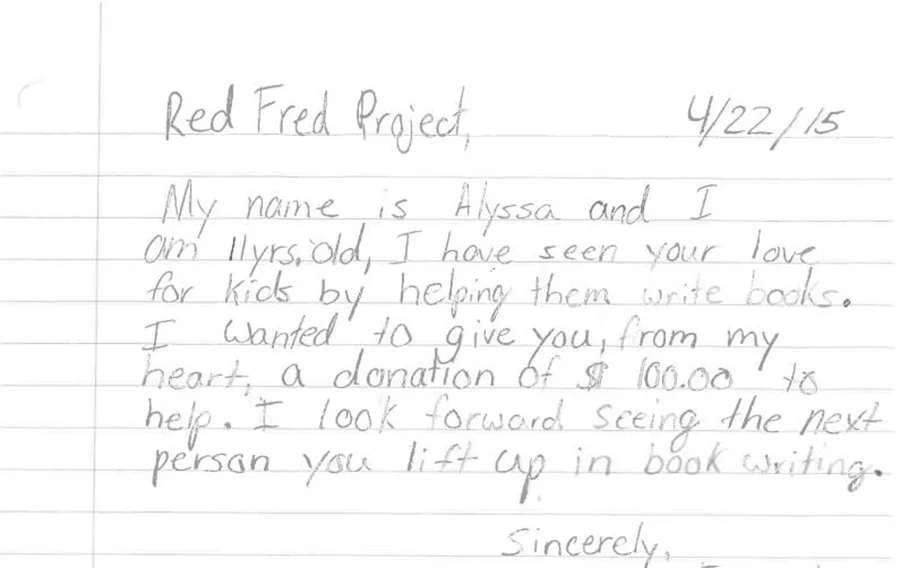 Red Fred Project, 4/22/15
My name is Alyssa and I
am 11yrs. old, I have seen your love
for kids by helping them write books.
I wanted to give you, from my
heart, a donation of $ 100.00 to
help. I look forward seeing the next
person you lift up in book writing.
Sincerely,